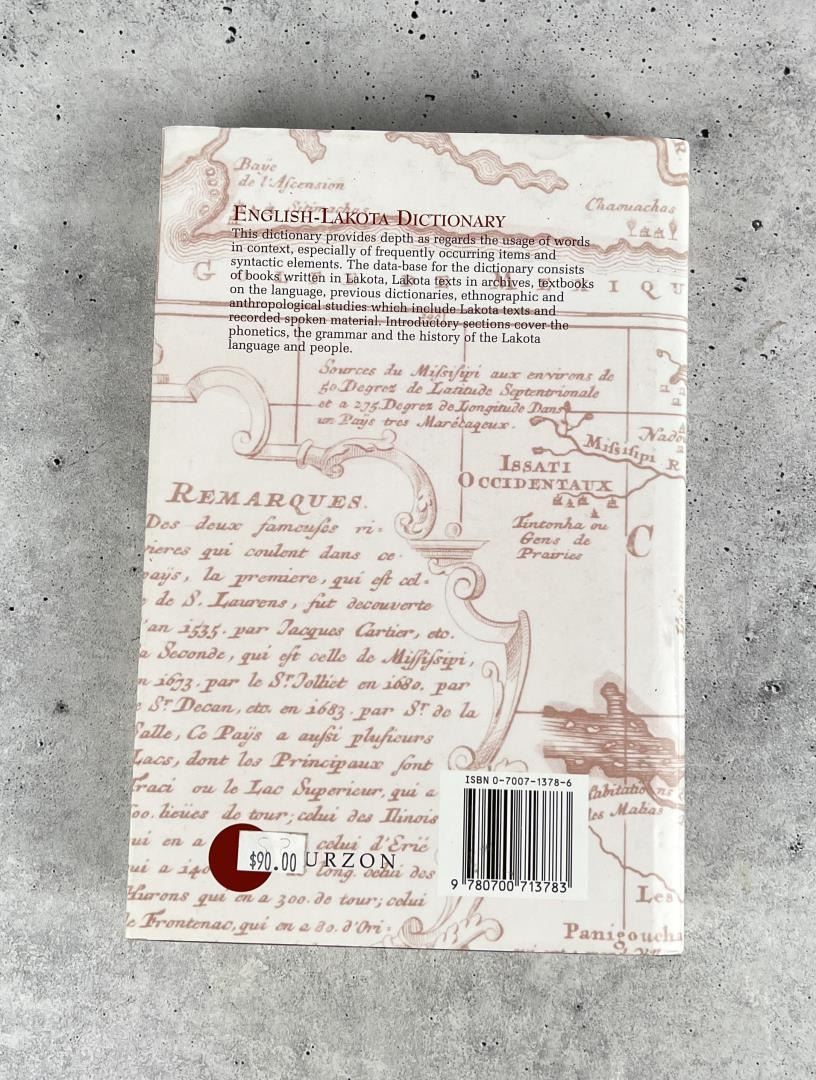 Baÿe
de l'Ascension
Chaouachas
ENGLISH-LAKOTA DICTIONARY
This dictionary provides depth as regards the usage of words
in context, especially of frequently occurring items and
syntactic elements. The data-base for the dictionary consists
of books written in Lakota, Lakota texts in archives, textbooks
on the language, previous dictionaries, ethnographic and
anthropological studies which include Lakota texts and
recorded spoken material. Introductory sections cover the
phonetics, the grammar and the history of the Lakota
language and people.
Sources du Missisipi aux environs de
50. Degrez de Latitude Septentrionale
et a 275. Degrez de Longitude Dans
un Païs tres Marécageux.
Missisipi R
ISSATI
OCCIDENTAUX
Tintonha ou
Gens de
Prairies
C
REMARQUES.
Des deux fameuses ri-
vieres qui coulent dans ce
païs, la premiere, qui est cel-
de S. Laurens, fut decouverte
an 1535. par Jacques Cartier, etc.
a Seconde, qui est celle de Missisipi,
1673. par le Sr. Jolliet en 1680. par
Sr. Decan, etc. en 1683. par Sr. de la
Salle, Ce Païs a aussi plusieurs
Lacs, dont les Principaux sont
Traci ou le Lac Superieur, qui a
lieües de tour; celui des Ilinois
ui en a celui d'Erié
ui a long. des
Hurons qui en a 300. de tour; celui
Frontenac, qui en a 80. d'Ori-
$90.00
URZON
ISBN 0-7007-1378-6
9 780700 713783
les Mahas
Les
Panigoucha